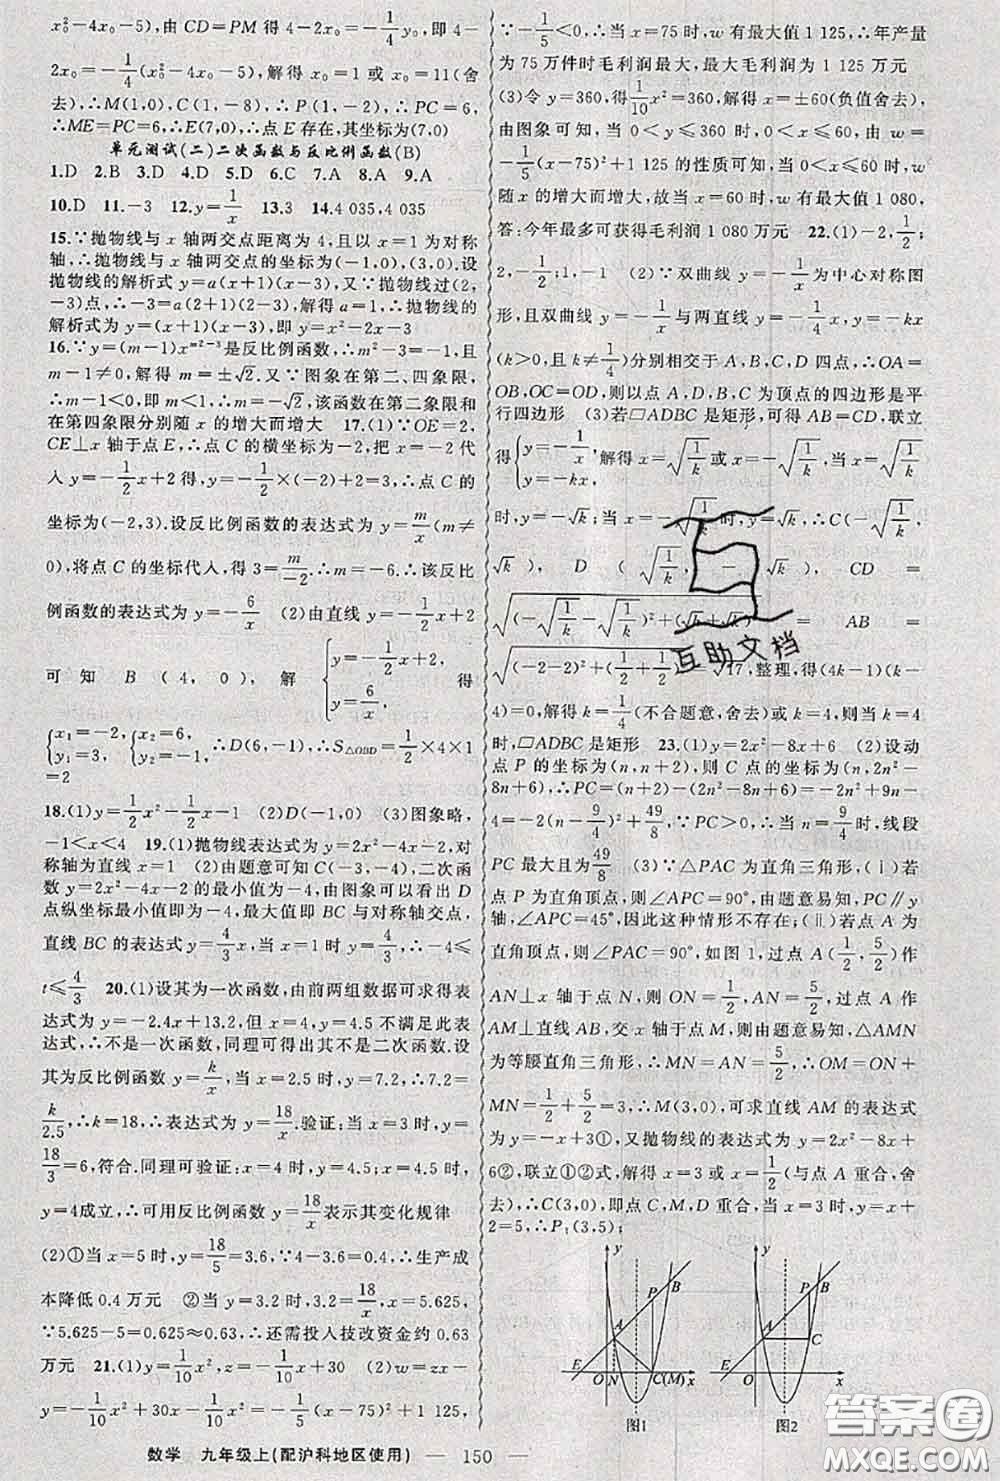 x₀²-4x₀-5),由 CD=PM 得 4-2x₀=-1/4y₀,即 4-
2x₀=-1/4(x₀²-4x₀-5),解得 x₀=1 或 x₀=11(舍
去),∴M(1,0),C(1,-8),∴P(1,-2),∴PC=6,
∴ME=PC=6,∴E(7,0),∴点 E存在,其坐标为(7,0)
单元测试(二)二次函数与反比例函数(B)
1.D 2.B 3.D 4.D 5.D 6.C 7.A 8.A 9.A
10.D 11.-3 12.y=1/x 13.3 14.4 035,4 035
15.∵抛物线与 x 轴两交点距离为 4,且以 x=1 为对称
轴,∴抛物线与 x 轴两交点的坐标为(-1,0),(3,0),设
抛物线的解析式 y=a(x+1)(x-3),又∵抛物线过(2,
-3)点,∴-3=a(2+1)(2-3),解得 a=1,∴抛物线的
解析式为 y=(x+1)(x-3),即 y=x²-2x-3
16.∵y=(m-1)x^(m²-3)是反比例函数,∴m²-3=-1,且
m-1≠0,解得 m=±√2.又∵图象在第二、四象限,
∴m-1<0,∴m=-√2,该函数在第二象限和
在第四象限分别随 x 的增大而增大 17.(1)∵OE=2,
CE⊥x 轴于点 E,∴点 C 的横坐标为-2,把 x=-2 代
入 y=-1/2x+2 得,y=-1/2×(-2)+2=3,∴点 C 的
坐标为(-2,3).设反比例函数的表达式为 y=m/x(m≠
0),将点 C 的坐标代入,得 3=m/-2,∴m=-6.∴该反比
例函数的表达式为 y=-6/x (2)由直线 y=-1/2x+2
可知 B(4,0),解 {y=-1/2x+2, y=-6/x, 得
{x₁=-2, y₁=3, {x₂=6, y₂=-1, ∴D(6,-1),∴S△OBD=1/2×4×1
=2
18.(1)y=1/2x²-1/2x-1 (2)D(-1,0) (3)图象略,
-1<x<4 19.(1)抛物线表达式为 y=2x²-4x-2,对
称轴为直线 x=1 (2)由题意可知 C(-3,-4),二次函
数 y=2x²-4x-2 的最小值为-4,由图象可以看出 D
点纵坐标最小值即为-4,最大值即 BC 与对称轴交点,
直线 BC 的表达式 y=4/3x,当 x=1 时 y=4/3,∴-4≤
t≤4/3 20.(1)设其为一次函数,由前两组数据可求得表
达式为 y=-2.4x+13.2,但 x=4,y=4.5 不满足此表
达式,∴不是一次函数,同理可得出其不是二次函数.设
其为反比例函数 y=k/x,当 x=2.5 时,y=7.2,∴7.2=
k/2.5,∴k=18,∴表达式为 y=18/x.验证:当 x=3 时,y=
18/3=6,符合.同理可验证:x=4 时,y=4.5,x=4.5 时,
y=4成立,∴可用反比例函数 y=18/x表示其变化规律
(2)①当 x=5 时,y=18/5=3.6,∵4-3.6=0.4,∴生产成
本降低 0.4 万元 ②当 y=3.2 时,3.2=18/x,x=5.625,
∵5.625-5=0.625≈0.63,∴还需投入技改资金约 0.63
万元 21.(1)y=1/10x²,z=-1/10x+30 (2)w=zx-
y=-1/10x²+30x-1/10x²=-1/5(x-75)²+1 125,
∵-1/5<0,∴当 x=75时,w 有最大值 1 125,∴年产量
为 75 万件时毛利润最大,最大毛利润为 1 125 万元
(3)令 y=360,得1/10x²=360,解得 x=±60(负值舍去),
由图象可知,当 0<y≤360 时,0<x≤60,由 w=
-1/5(x-75)²+1 125 的性质可知,当 0<x≤60 时,w
随 x 的增大而增大,故当 x=60 时,w 有最大值 1 080,
答:今年最多可获得毛利润 1 080 万元 22.(1)-2,1/2;
2,-1/2;1,-1 (2)∵双曲线 y=-1/x为中心对称图
形,且双曲线 y=-1/x与两直线 y=-1/4x,y=-kx
(k>0,且 k≠1/4)分别相交于 A,B,C,D 四点,∴OA=
OB,OC=OD,则以点 A,D,B,C 为顶点的四边形是平
行四边形 (3)若□ADBC 是矩形,可得 AB=CD,联立
得{y=-1/x, y=-kx, 解得 x=√(1/k)或 x=-√(1/k),当 x=√(1/k)
时,y=-√k;当 x=-√(1/k)时,y=√k,∴C(-√(1/k),
√k),D(√(1/k),-√k),CD=
√((-√(1/k)-√(1/k))²+(√k+√k)²)=AB=
√((-2-2)²+(1/2+1/2)²)=√17,整理,得(4k-1)(k-
4)=0,解得 k=1/4(不合题意,舍去)或 k=4,则当 k=4
时,□ADBC 是矩形 23.(1)y=2x²-8x+6 (2)设动
点 P 的坐标为(n,n+2),则点 C 的坐标为(n,2n²-
8n+6),∴PC=(n+2)-(2n²-8n+6)=-2n²+9n
-4=-2(n-9/4)²+49/8,∵PC>0,∴当 n=9/4时,线段
PC 最大且为49/8 (3)∵△PAC 为直角三角形,(ⅰ)若
点 P 为直角顶点,则∠APC=90°,由题意易知,PC∥y
轴,∠APC=45°,因此这种情形不存在;(ⅱ)若点 A 为
直角顶点,则∠PAC=90°,如图 1,过点 A(1/2,5/2)作
AN⊥x 轴于点 N,则 ON=1/2,AN=5/2,过点 A 作
AM⊥直线 AB,交 x 轴于点 M,则由题意易知,△AMN
为等腰直角三角形,∴MN=AN=5/2,∴OM=ON+
MN=1/2+5/2=3,∴M(3,0),可求直线 AM 的表达式
为 y=-x+3①,又抛物线的表达式为 y=2x²-8x+
6②,联立①②式,解得 x=3 或 x=1/2(与点 A 重合,舍
去),∴C(3,0),即点 C,M 点重合,当 x=3 时,y=x+
2=5,∴P₁(3,5);
y P B A E O N C(M) x 图1
y P B A C E O x 图2
互助文档
答案圈
MXQE.COM
数学 九年级上(配沪科地区使用) — 150 —